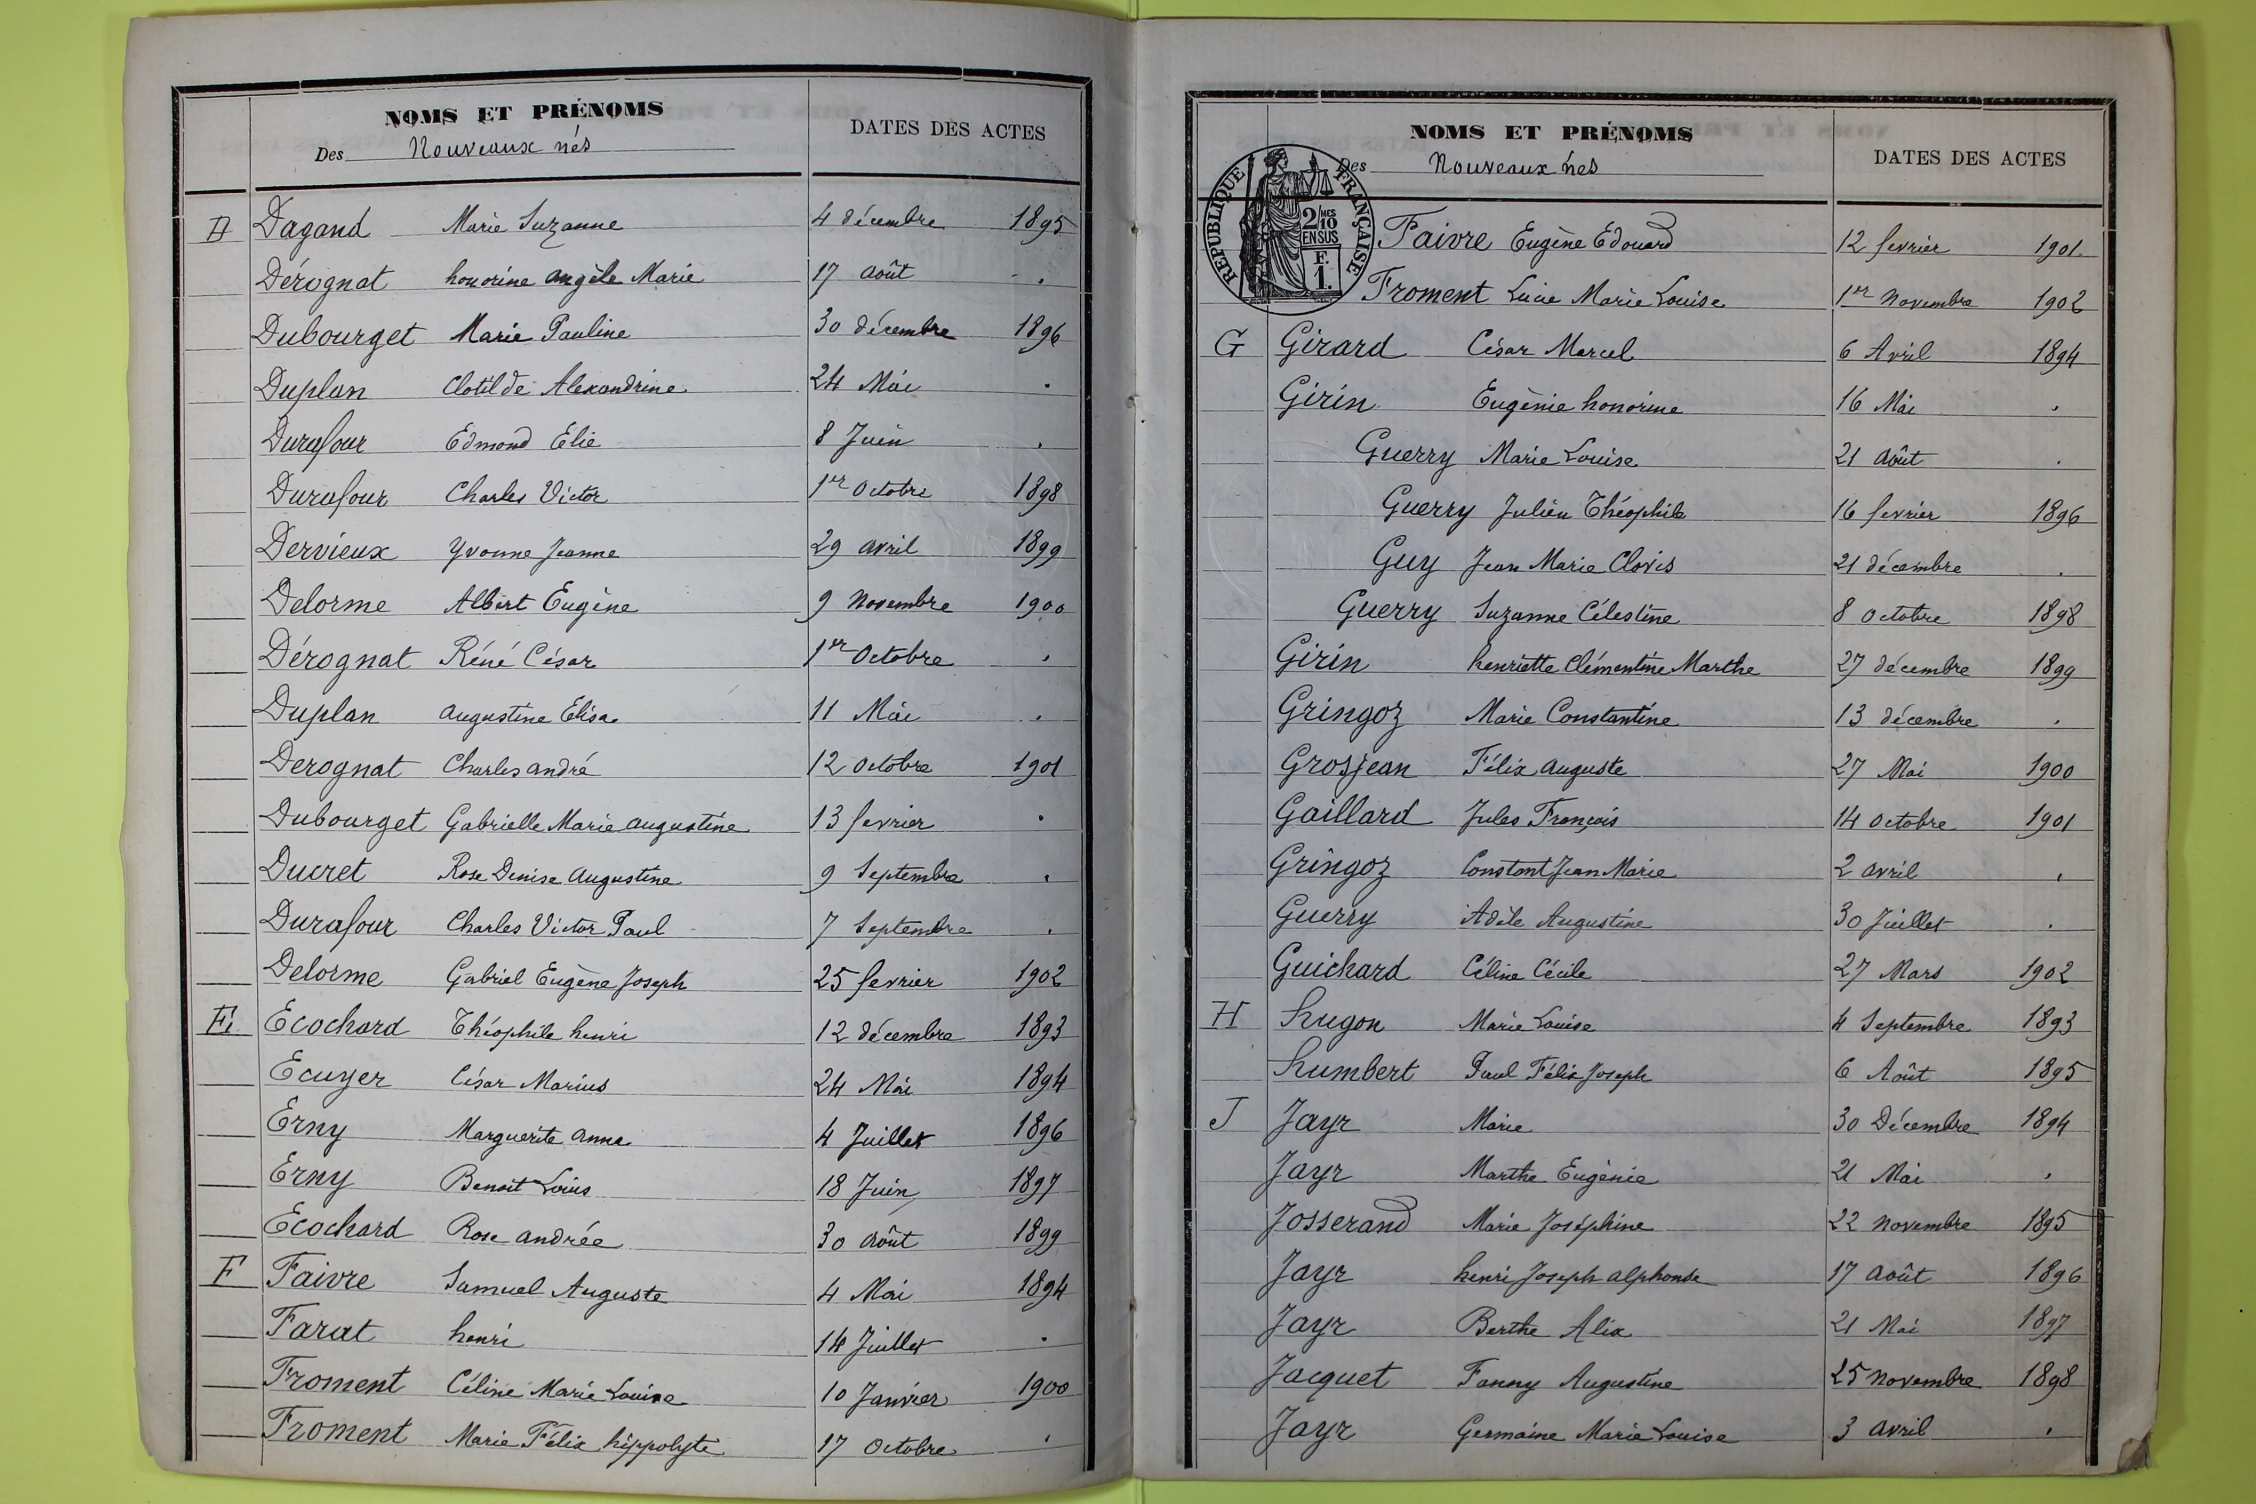 NOMS ET PRÉNOMS
Des Nouveaux nés
DATES DES ACTES
D Dagand Marie Suzanne 4 décembre 1895
Dérognat honorine angèle Marie 17 août - .
Dubourget Marie Pauline 30 décembre 1896
Duplan Clotilde Alexandrine 24 Mai .
Durafour Edmond Élie 8 Juin .
Durafour Charles Victor 1er Octobre 1898
Dervieux Yvonne Jeanne 29 avril 1899
Delorme Albert Eugène 9 Novembre 1900
Dérognat Réné César 1er Octobre .
Duplan augustine Élisa 11 Mai .
Derognat Charles andré 12 Octobre 1901
Dubourget Gabrielle Marie augustine 13 fevrier .
Ducret Rose Denise Augustine 9 Septembre .
Durafour Charles Victor Paul 7 Septembre .
Delorme Gabriel Eugène Joseph 25 fevrier 1902
E Ecochard Théophile henri 12 décembre 1893
Ecuyer César Marius 24 Mai 1894
Erny Marguerite anna 4 Juillet 1896
Erny Benoit Louis 18 Juin 1897
Ecochard Rose andrée 30 août 1899
F Faivre Samuel Auguste 4 Mai 1894
Farat henri 14 Juillet .
Froment Céline Marie Louise 10 Janvier 1900
Froment Marie Félix hippolyte 17 Octobre .
NOMS ET PRÉNOMS
Des Nouveaux nés
DATES DES ACTES
RÉPUBLIQUE FRANÇAISE
2/10 MES
EN SUS
F.
1.
Faivre Eugène Edouard 12 fevrier 1901.
Froment Lucie Marie Louise 1er Novembre 1902
G Girard César Marcel 6 Avril 1894
Girin Eugènie honorine 16 Mai .
Guerry Marie Louise 21 Août .
Guerry Julien Théophile 16 fevrier 1896
Guy Jean Marie Clovis 21 décembre .
Guerry Suzanne Célestine 8 Octobre 1898
Girin henriette Clémentine Marthe 27 décembre 1899
Gringoz Marie Constantine 13 décembre .
Grosjean Félix auguste 27 Mai 1900
Gaillard Jules François 14 Octobre 1901
Gringoz Constant Jean Marie 2 avril .
Guerry Adèle Augustine 30 Juillet .
Guichard Céline Cécile 27 Mars 1902
H hugon Marie Louise 4 Septembre 1893
humbert Paul Félix Joseph 6 Août 1895
J Jayr Marie 30 Décembre 1894
Jayr Marthe Eugènie 21 Mai .
Josserand Marie Joséphine 22 Novembre 1895
Jayr henri Joseph alphonse 17 août 1896
Jayr Berthe Alix 21 Mai 1897
Jacquet Fanny Augustine 25 Novembre 1898
Jayr Germaine Marie Louise 3 avril .